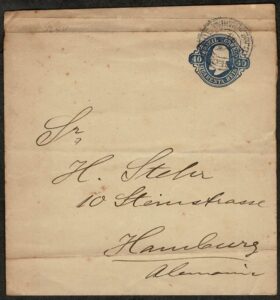 40 40
Sr.
H. Stehr
10 Steinstrasse
Hamburg
Alemania